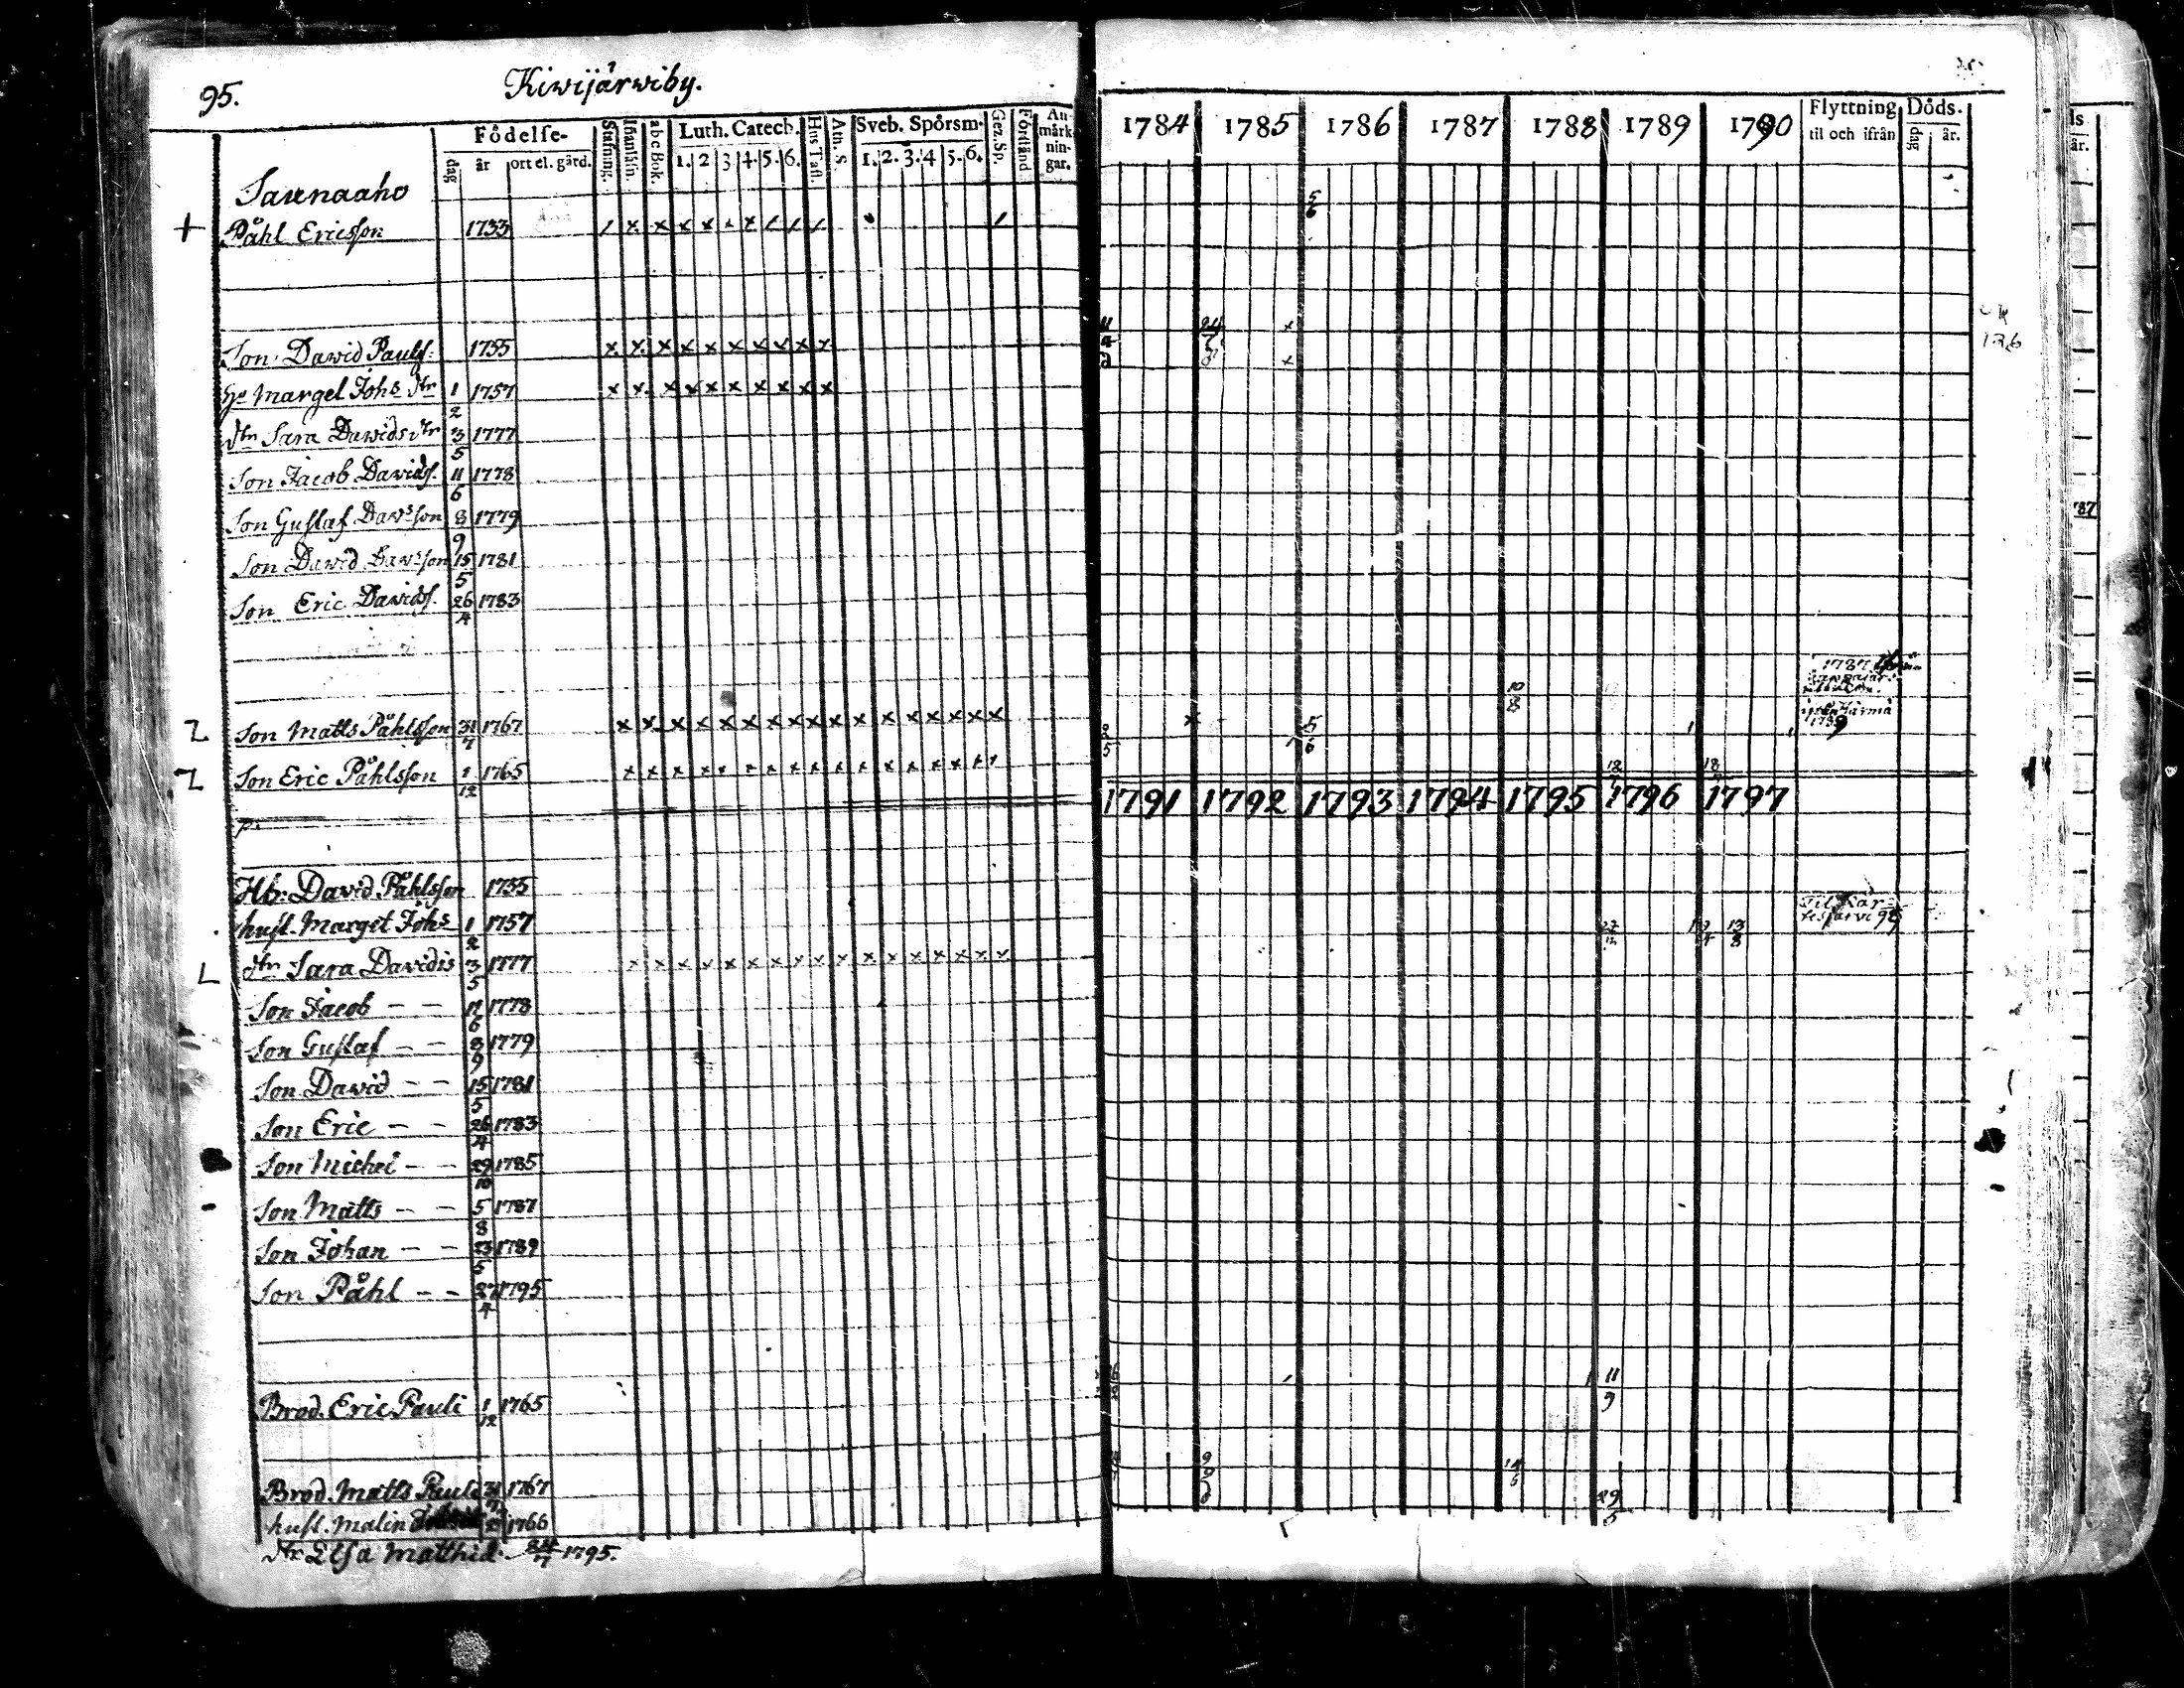 95.
Kiwijärwiby.
Födelse-
dag
år
ort el. gård.
Stafning.
Innanläsn.
abc Bok.
Luth. Catech.
1. 2 3 4 5. 6.
Hus Tafl.
Ath. S.
Sveb. Spörsm.
1. 2. 3. 4 5. 6.
Gez. Sp.
Förstånd
An
märk
nin-
gar.
1784 1785 1786 1787 1788 1789 1790
Flyttning
til och ifrån
Döds-
dag
år.
Påhl Ericsson 1733
5/6
Son. Dawid Paulss. 1755
Hu Margel Johs dtr 1/2 1757
dtr Sara Dawids dtr 3/5 1777
Son Jacob Dawidss. 11/6 1778
Son Gustaf Daws son 8/9 1779
Son Dawid Daws son 15/5 1781
Son Eric Dawidss. 26/4 1783
10/8
1787
Son Matts Påhlsson 31/7 1767
5/6
1789
Son Eric Påhlsson 1/12 1765
1791 1792 1793 1794 1795 1796 1797
Hb. David Påhlsson 1755
hust. Marget Johs 1/2 1757
Til Kär-
dtr Sara Davidis 3/5 1777
Son Jacob – – 11/6 1778
Son Gustaf – – 8/9 1779
Son David – – 15/5 1781
Son Eric – – 26/4 1783
Son Michel – – 29/10 1785
Son Matts – – 5/8 1787
Son Johan – – 23/5 1789
Son Påhl – – 27/4 1795
Brod. Eric Pauli 1/12 1765
11/9
Brod. Matts Pauli 31/7 1767
hust. Malin 1766
29/5
dtr Elsa Matthid. 24/7 1795.